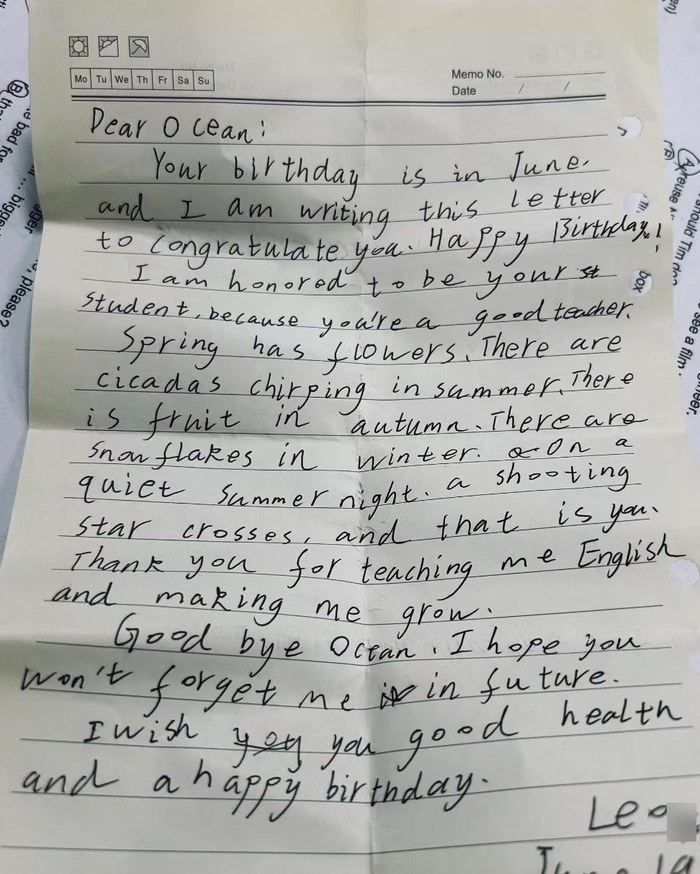 Mo Tu We Th Fr Sa Su
Memo No.
Date / /
Dear Ocean:
Your birthday is in June.
and I am writing this letter
to congratulate you. Happy Birthday!
I am honored to be your st
student, because you're a good teacher.
Spring has flowers. There are
cicadas chirping in summer. There
is fruit in autumn. There are
snowflakes in winter. On a
quiet summer night. a shooting
star crosses, and that is you.
Thank you for teaching me English
and making me grow.
Good bye Ocean. I hope you
won't forget me in in future.
I wish you you good health
and a happy birthday.
Leo
June 19
box
, please?
see a film